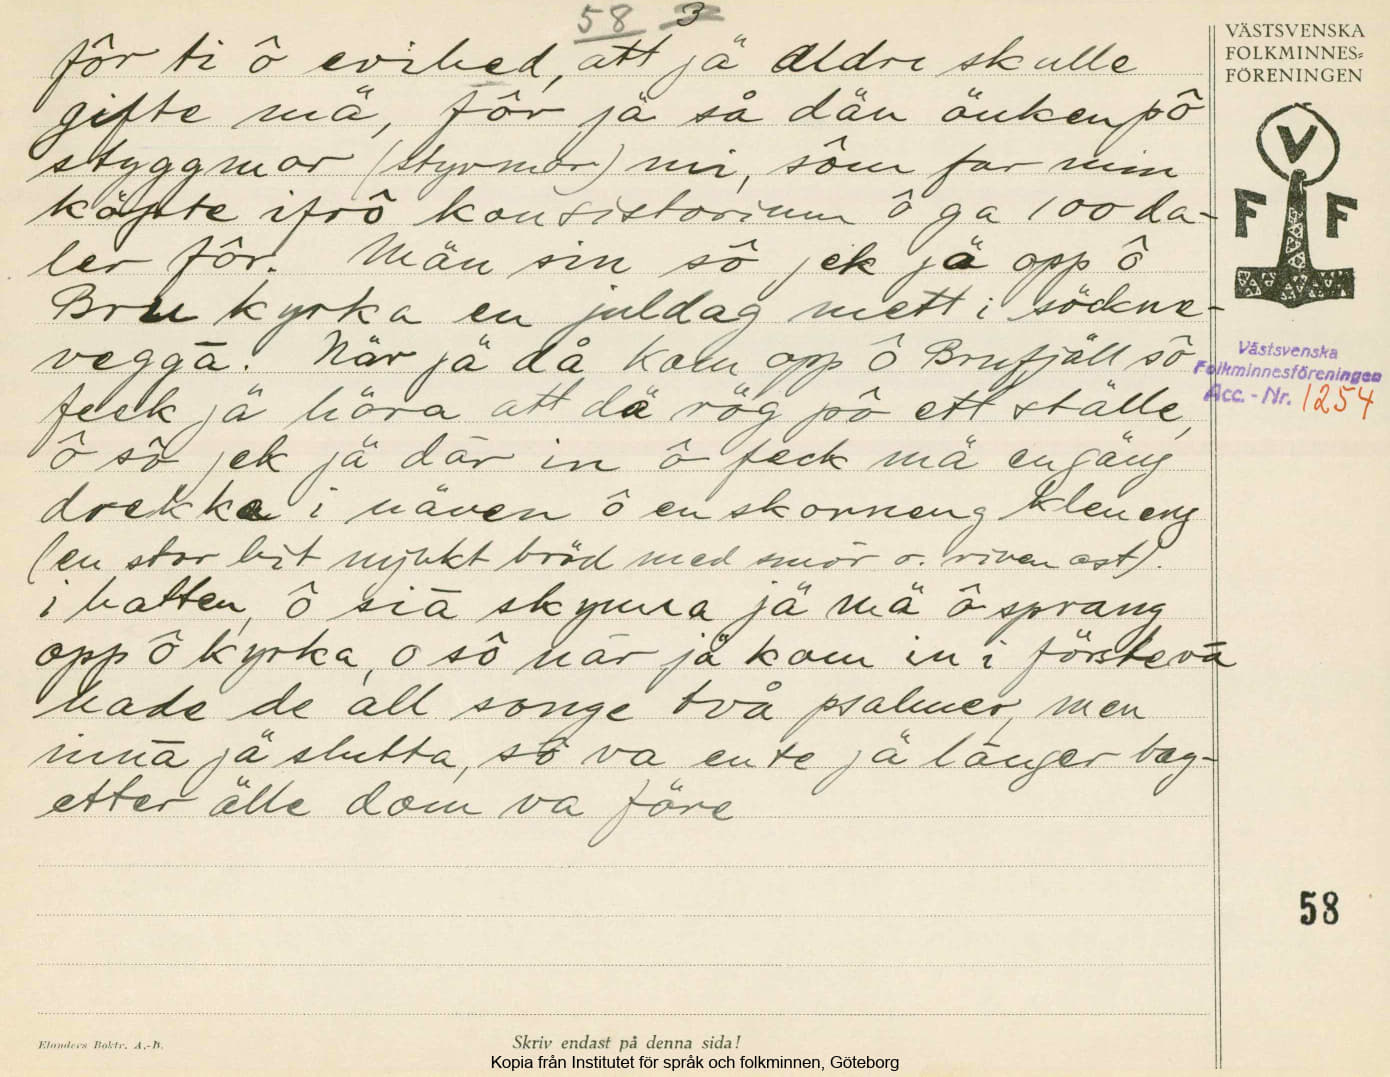 58 3
fôr ti ô evihed, att jä aldri skulle
gifte mä, fôr jä så dän änken pô
styggmor (styvmor) mi, sôm far min
köpte ifrô konsistorium ô ga 100 da-
ler fôr. Män sin sô jek jä opp ô
Bru kyrka en juldag mett i söckne-
veggä. När jä då kom opp ô Brufjäll sô
feck jä höra att dä rög pô ett ställe,
ô sô jek jä där in ô feck mä en gäng
drekka i näven ô en skorneng kleneng
(en stor bit mjukt bröd med smör o. riven ost).
i hatten, ô siä skynna jä mä ô sprang
opp ô kyrka, o sô när jä kom in i förstevä
hade de all songe två psalmer, men
innä jä slutta, sô va ente jä länger bag-
etter älle dom va före
VÄSTSVENSKA
FOLKMINNES-
FÖRENINGEN
V
F F
Västsvenska
Folkminnesföreningen
Acc. - Nr. 1254
58
Elanders Boktr. A.-B.
Skriv endast på denna sida!
Kopia från Institutet för språk och folkminnen, Göteborg